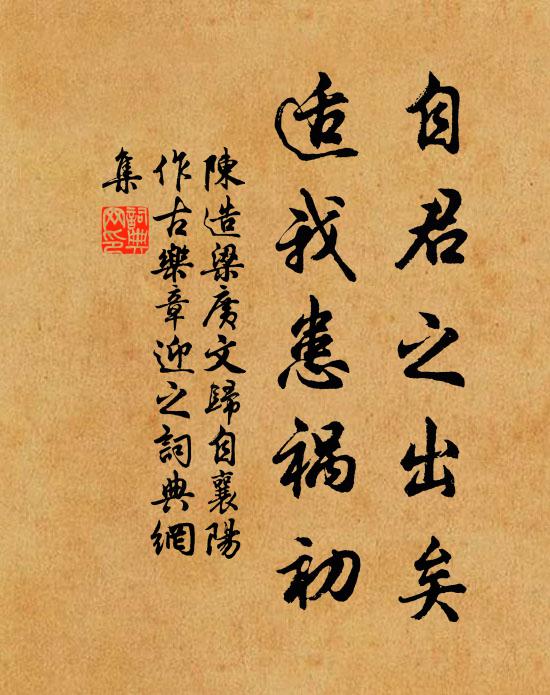 自君之出矣
适我患祸初
陳造梁廣文歸自襄陽
作古樂章迎之詞典網
集
詞典
网印